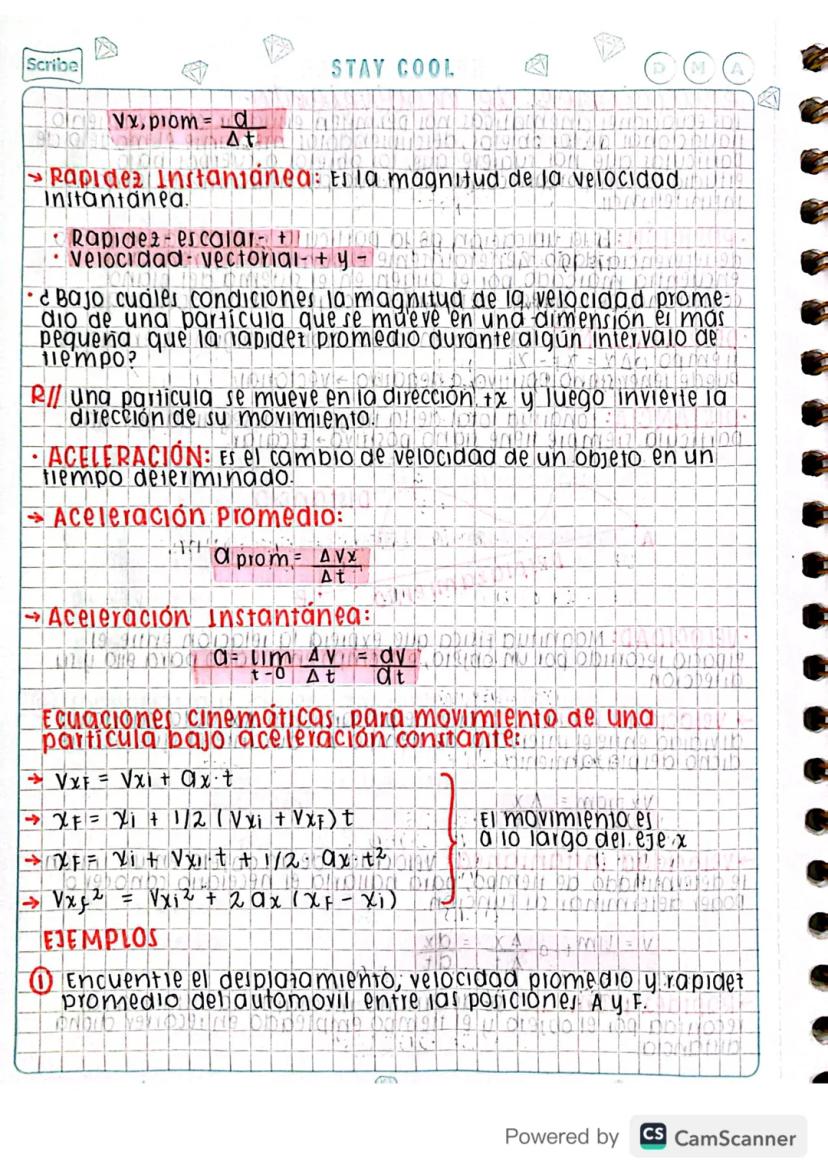 Scribe
STAY COOL
D M A
Vx, prom = d / Δt
→ Rapidez Instantánea: Es la magnitud de la velocidad
instantánea.
· Rapidez - escalar - +
· Velocidad - vectorial - + y -
· ¿Bajo cuáles condiciones la magnitud de la velocidad prome-
dio de una partícula que se mueve en una dimensión es más
pequeña que la rapidez promedio durante algún intervalo de
tiempo?
R// Una partícula se mueve en la dirección +x y luego invierte la
dirección de su movimiento.
· ACELERACIÓN: Es el cambio de velocidad de un objeto en un
tiempo determinado.
→ Aceleración Promedio:
a prom = ΔVx / Δt
→ Aceleración Instantánea:
a = lim t→0 Δv / Δt = dv / dt
Ecuaciones cinemáticas para movimiento de una
partícula bajo aceleración constante:
→ VxF = Vxi + ax·t
→ xF = xi + 1/2 (Vxi + VxF) t
El movimiento es
a lo largo del eje x
→ xF = xi + Vxi·t + 1/2 · ax·t²
→ Vxf² = Vxi² + 2ax (xF - xi)
EJEMPLOS
① Encuentre el desplazamiento, velocidad promedio y rapidez
promedio del automovil entre las posiciones A y F.
Powered by CS CamScanner